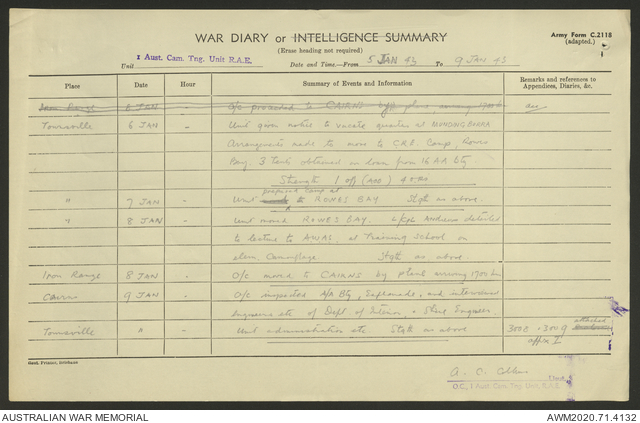 WAR DIARY or INTELLIGENCE SUMMARY
Army Form C.2118
(adapted.)
(Erase heading not required)
Unit 1 Aust. Cam. Tng. Unit R.A.E. Date and Time—From 5 JAN 43 To 9 JAN 43
Place Date Hour Summary of Events and Information Remarks and references to Appendices, Diaries, &c.
Iron Range 6 JAN - O/c proceeded to CAIRNS by plane arriving 1700 h
Townsville 6 JAN - Unit given notice to vacate quarters at
Arrangements made to move to C.R.E. Camp, Rowes
Bay. 3 Tents obtained on loan from 16 AA Bty
Strength 1 off (AOD) 4 ORs
prepared camp at
" 7 JAN - Unit ROWES BAY Stgth as above.
" 8 JAN - Unit moved ROWES BAY. L/Cpl Andrews detailed
to lecture to AWAS. at Training School on
elem. Camouflage Stgth as above.
Iron Range 8 JAN - O/c moved to CAIRNS by plane arriving 1700 hrs
Cairns 9 JAN - O/c inspected A/A Bty, and interviewed
Engineers etc of Dept of Interior & Engineer.
Townsville " - Unit administration etc. Stgth as above
3008 - 3009 attached
appx I
Govt. Printer, Brisbane
O.C. 1 Aust. Cam. Tng. Unit, R.A.E.
AUSTRALIAN WAR MEMORIAL
AWM2020.71.4132